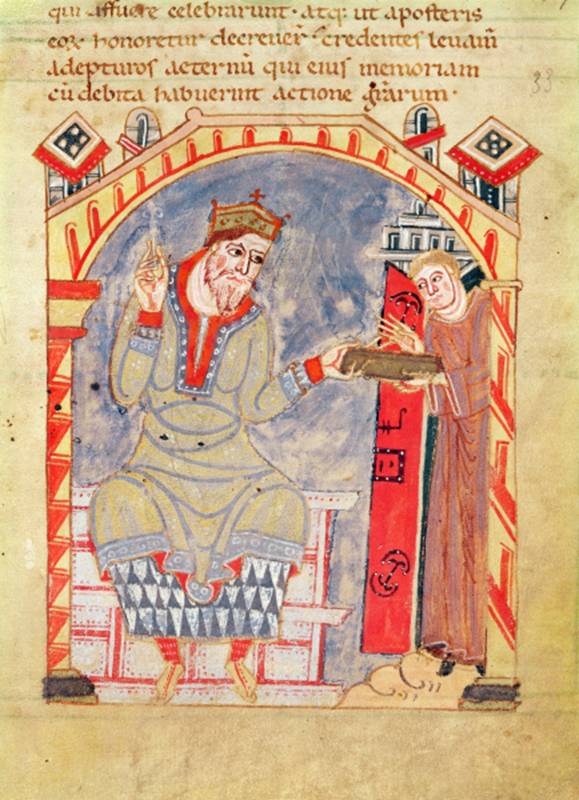 qui affuere celebrarunt· atq; ut aposteris
honoretur decreuer̄ credentes leuam̄
adepturos aeternū qui eius memoriam
cū debita habuerint actione grārum·
33